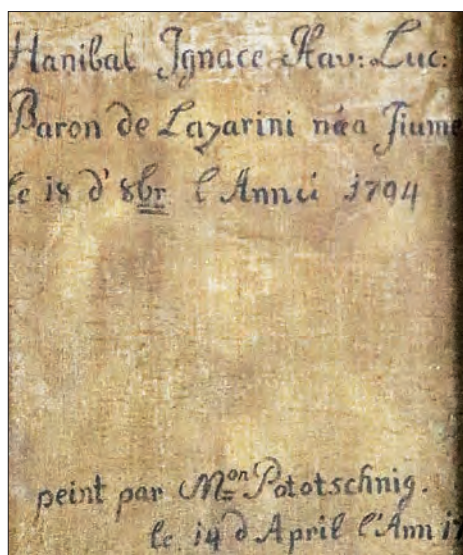 Hanibal Ignace Xav: Luc:
Baron de Lazarini néa Fiume
le 18 d' 8br l'Anneé 1794
peint par Mon Pototschnig.
le 14 d April l'Ann 17